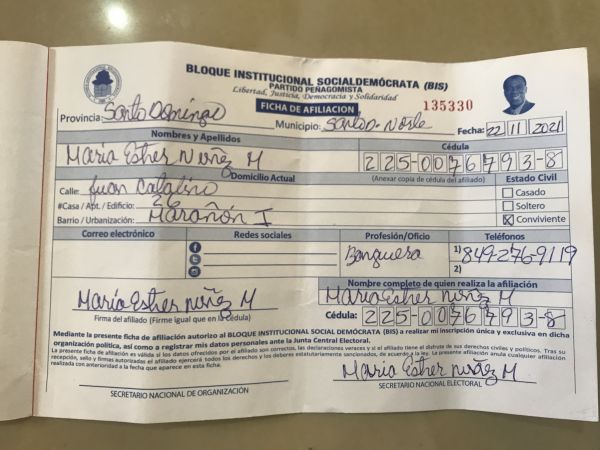 BLOQUE INSTITUCIONAL SOCIALDEMÓCRATA (BIS)
PARTIDO PEÑAGOMISTA
Libertad, Justicia, Democracia y Solidaridad
FICHA DE AFILIACION
135330
Provincia: Santo Domingo
Municipio: Santo D. Norte
Fecha: 22 11 2021
Nombres y Apellidos
Cédula
Maria Esther Nuñez M
225-0076793-8
Domicilio Actual
(Anexar copia de cédula del afiliado)
Estado Civil
Calle: Juan Catalino
Casado
#Casa / Apt. / Edificio: 26
Soltero
Barrio / Urbanización: Marañón I
X Conviviente
Correo electrónico
Redes sociales
Profesión/Oficio
Teléfonos
Banquera
1) 849-276-9119
2)
Nombre completo de quien realiza la afiliación
Maria Esther Nuñez M
Maria Esther Nuñez M
Firma del afiliado (Firme igual que en la Cédula)
Cédula: 225-0076793-8
Mediante la presente ficha de afiliación autorizo al BLOQUE INSTITUCIONAL SOCIAL DEMÓCRATA (BIS) a realizar mi inscripción única y exclusiva en dicha
organización política, así como a registrar mis datos personales ante la Junta Central Electoral.
La presente ficha de afiliación es válida si los datos ofrecidos por el afiliado son correctos, las declaraciones veraces y si el afiliado tiene el disfrute de sus derechos civiles y políticos. Tras su
recepción, sello y firmas autorizadas el afiliado ejercerá todos los derechos y los deberes estatutariamente sancionados, de acuerdo a la ley. La presente afiliación anula cualquier afiliación
realizada con anterioridad a la fecha que aparece en esta ficha.
Maria Esther Nuñez M
SECRETARIO NACIONAL DE ORGANIZACIÓN
SECRETARIO NACIONAL ELECTORAL